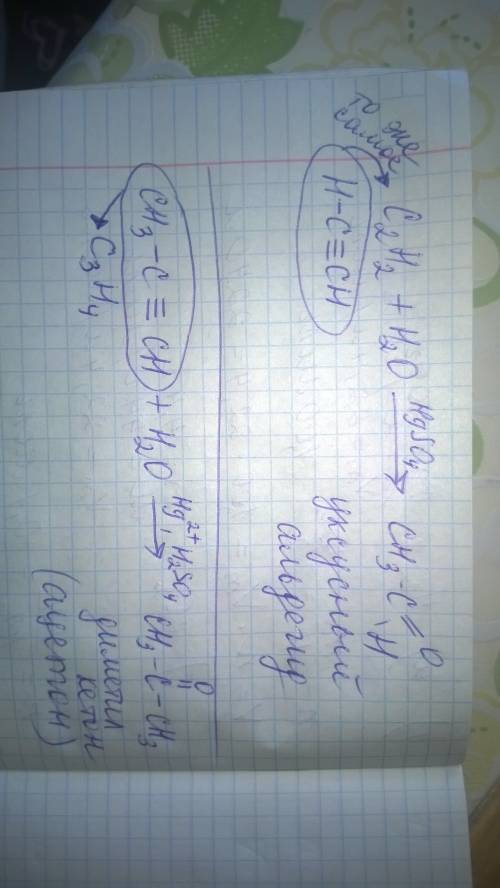 то же
самое
C₂H₂ + H₂O HgSO₄ → CH₃-C=O
H
H-C≡CH
уксусный
альдегид
CH₃-C≡CH + H₂O Hg²⁺, H₂SO₄ → CH₃-C-CH₃
O
C₃H₄
диметил
кетон
(ацетон)